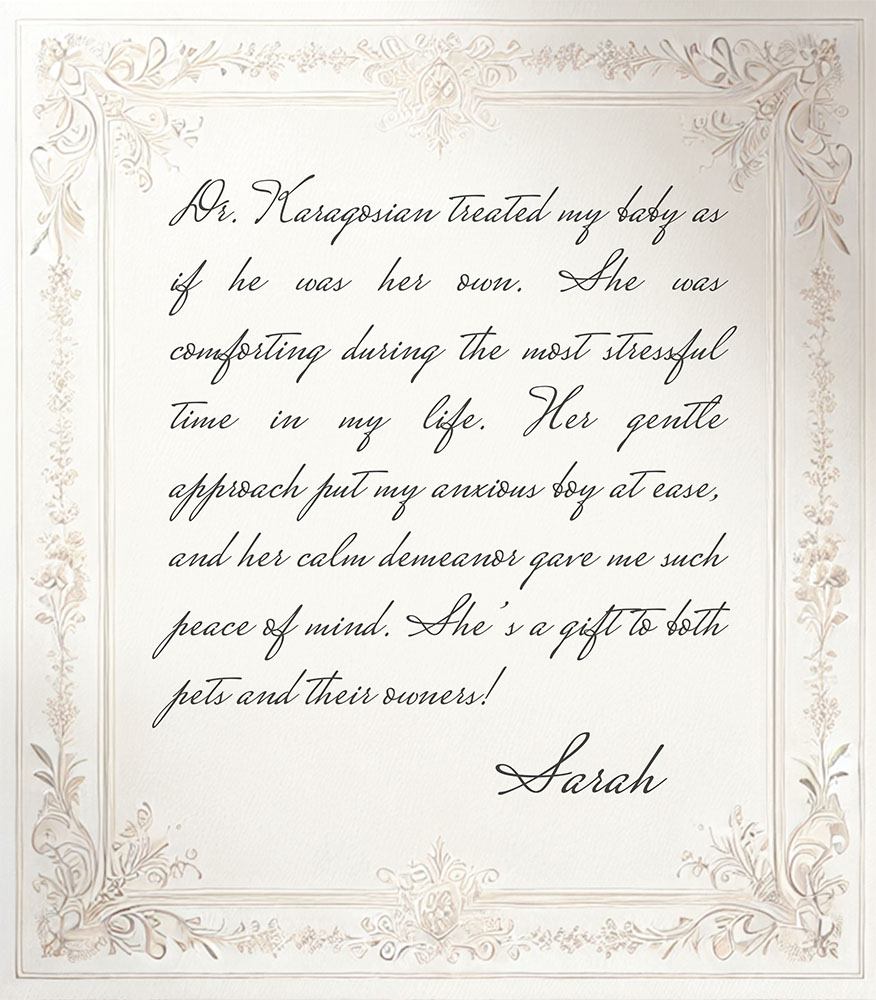 Dr. Karagosian treated my baby as
if he was her own. She was
comforting during the most stressful
time in my life. Her gentle
approach put my anxious boy at ease,
and her calm demeanor gave me such
peace of mind. She's a gift to both
pets and their owners!
Sarah